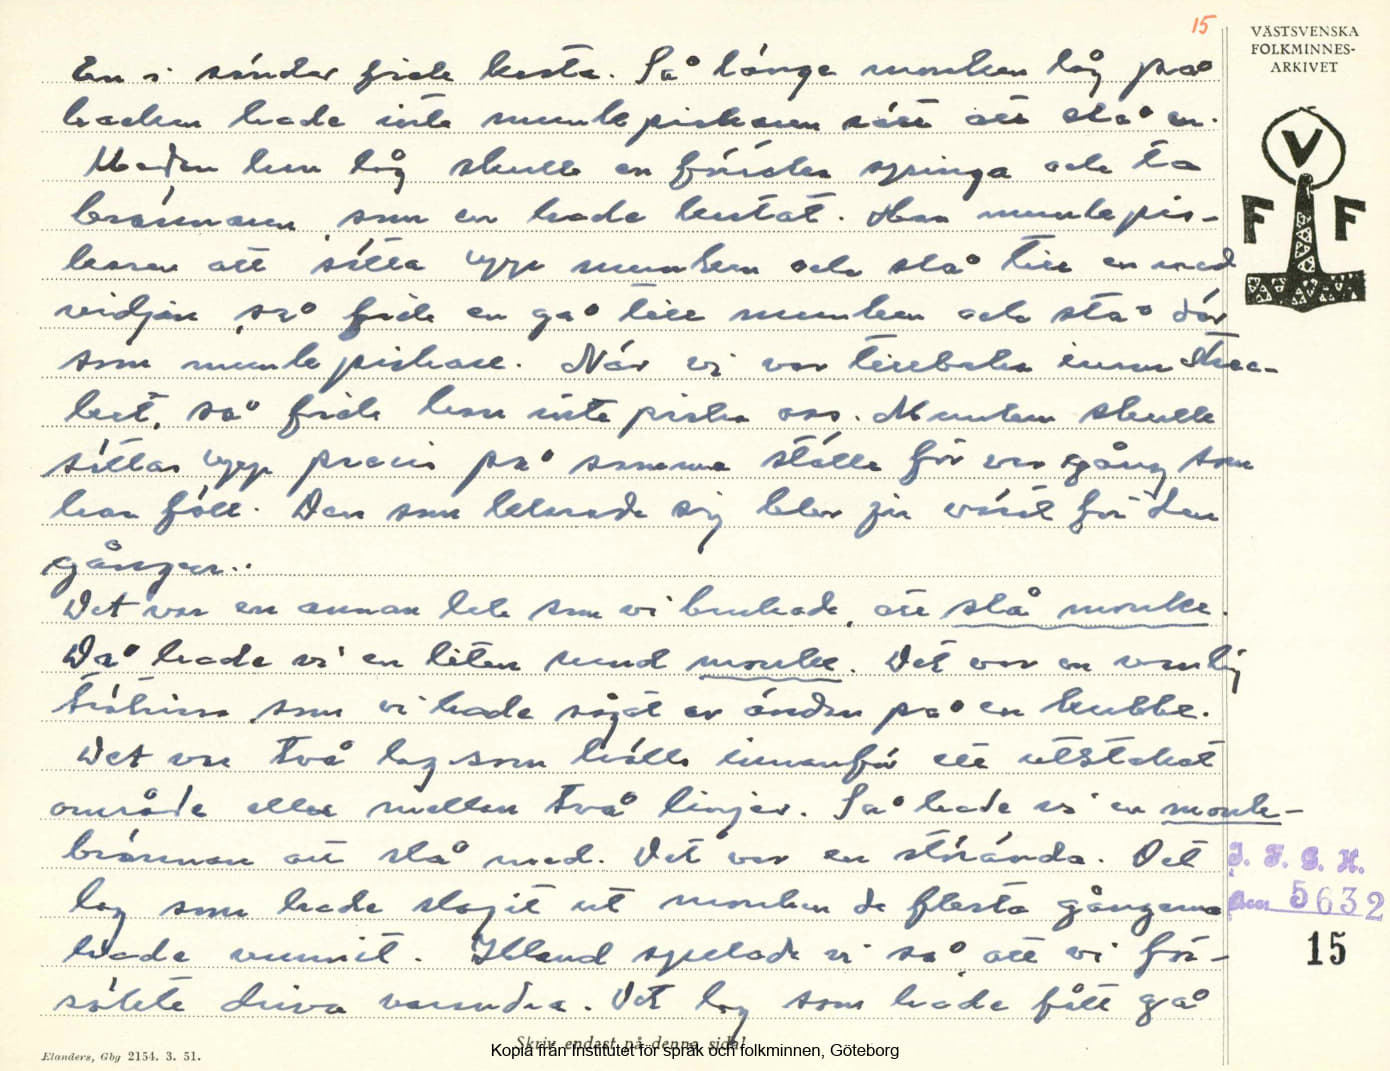 15
VÄSTSVENSKA
FOLKMINNES-
ARKIVET
V
F F
En i sänder fick kasta. Så länge munken låg på
backen hade inte munkpiskaren rätt att slå en.
Medan hun låg skulle en försöka springa och ta
brännaren som en hade kastat. Han munkpis-
karen att sätta upp munken och slå till en med
vidjan, så fick en gå till munken och stå där
som munkpiskare. När vi var tillbaka inom strec-
ket, så fick han inte piska oss. Munken skulle
sättas upp precis på samma ställe för var gång som
han föll. Den som klarade sig blev ju värst för den
gången.
Det var en annan lek som vi brukade, att slå monke.
Då hade vi en liten rund monke. Det var en vanlig
trätrissa som vi hade sågat av änden på en kubbe.
Det var två lag som hölls innanför ett utstakat
område eller mellan två linjer. Så hade vi en monk-
brännare att slå med. Det var en störända. Det
lag som hade slagit ut monken de flesta gångerna
hade vunnit. Ibland spelade vi så, att vi för-
sökte driva varandra. Det lag som hade fått gå
I. F. G. H.
Acc 5632
15
Skriv endast på denna sida!
Elanders, Gbg 2154. 3. 51.
Kopia från Institutet för språk och folkminnen, Göteborg